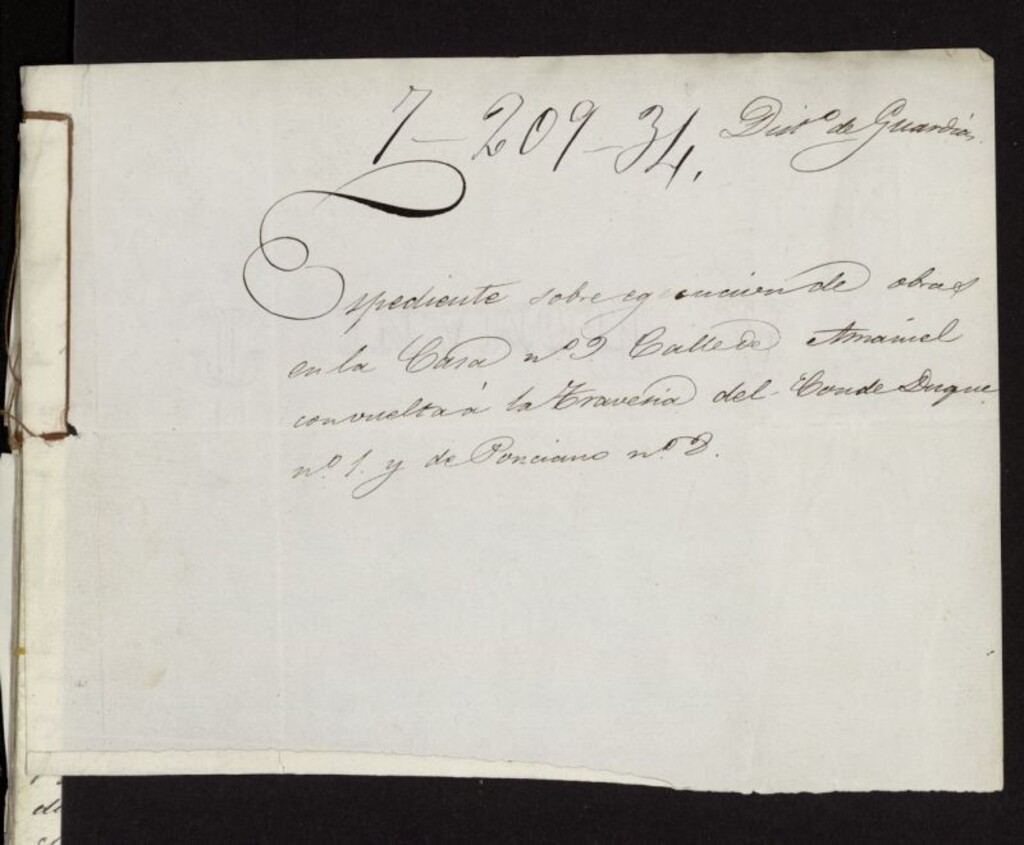 7-209-34. Dist.º de Guardias.
Espediente sobre egecucion de obras
en la Casa nº 9 Calle de Amaniel
con vuelta á la Travesia del Conde Duque
nº 1. y de Ponciano nº 8.